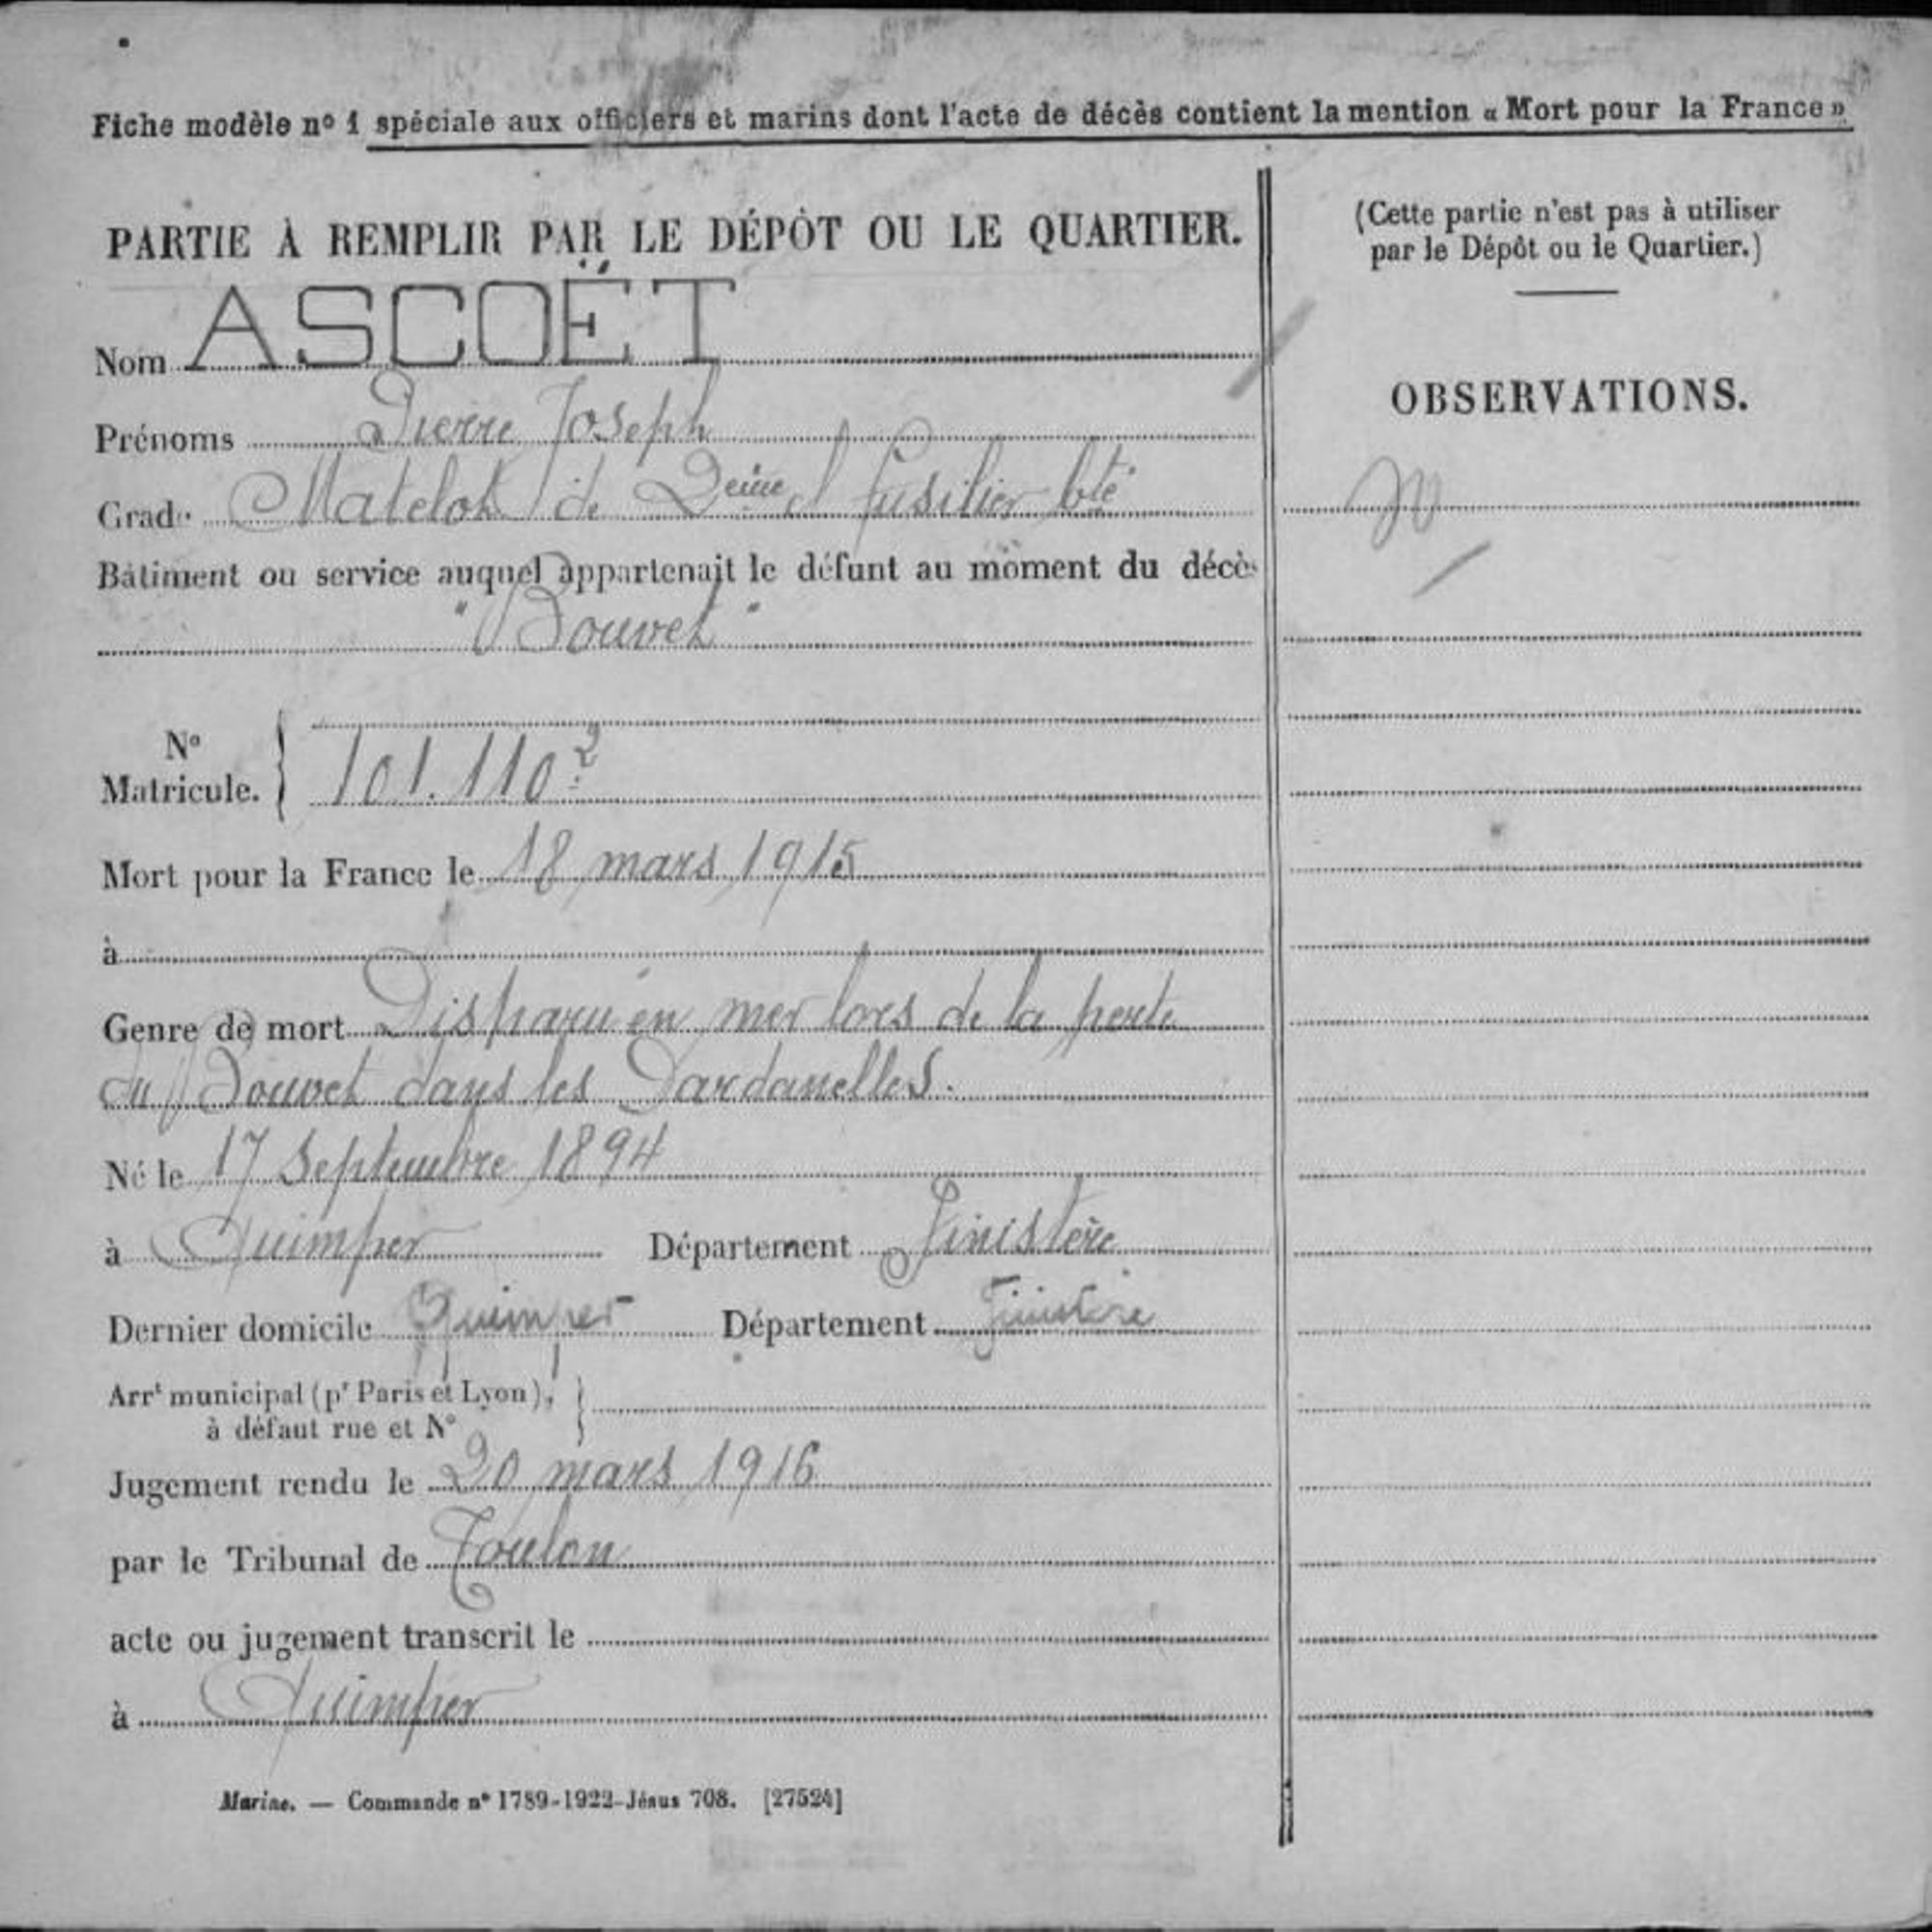 Fiche modèle nº 1 spéciale aux officiers et marins dont l'acte de décès contient la mention « Mort pour la France »
PARTIE À REMPLIR PAR LE DÉPÔT OU LE QUARTIER.
Nom ASCOËT
Prénoms Pierre Joseph
Grade Matelot de 2eme cl fusilier bté
Bâtiment ou service auquel appartenait le défunt au moment du décès
"Bouvet"
Nº
Matricule. } 101.110 2
Mort pour la France le 18 mars 1915
à
Genre de mort Disparu en mer lors de la perte
du Bouvet dans les Dardanelles.
Né le 17 Septembre 1894
à Quimper Département Finistère
Dernier domicile Quimper Département Finistère
Arrt municipal (pr Paris et Lyon), }
à défaut rue et Nº
Jugement rendu le 20 mars 1916
par le Tribunal de Toulon
acte ou jugement transcrit le
à Quimper
Marine. — Commande nº 1789-1922-Jésus 708. [27524]
(Cette partie n'est pas à utiliser
par le Dépôt ou le Quartier.)
OBSERVATIONS.